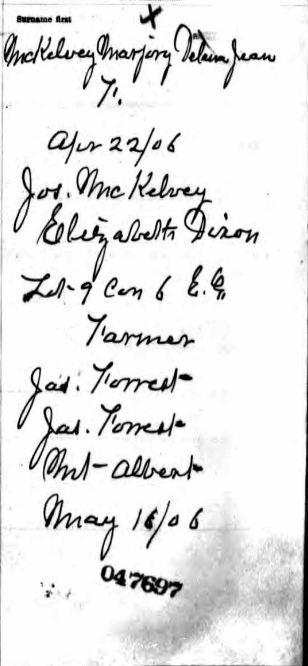 Surname first
X
McKelvey Marjory Jean
F.
Apr 22/06
Jos. McKelvey
Elizabeth Dixon
Lot 9 Con 6 E.G.
Farmer
Jas. Forrest
Jas. Forrest
Mt Albert
May 16/06
047697